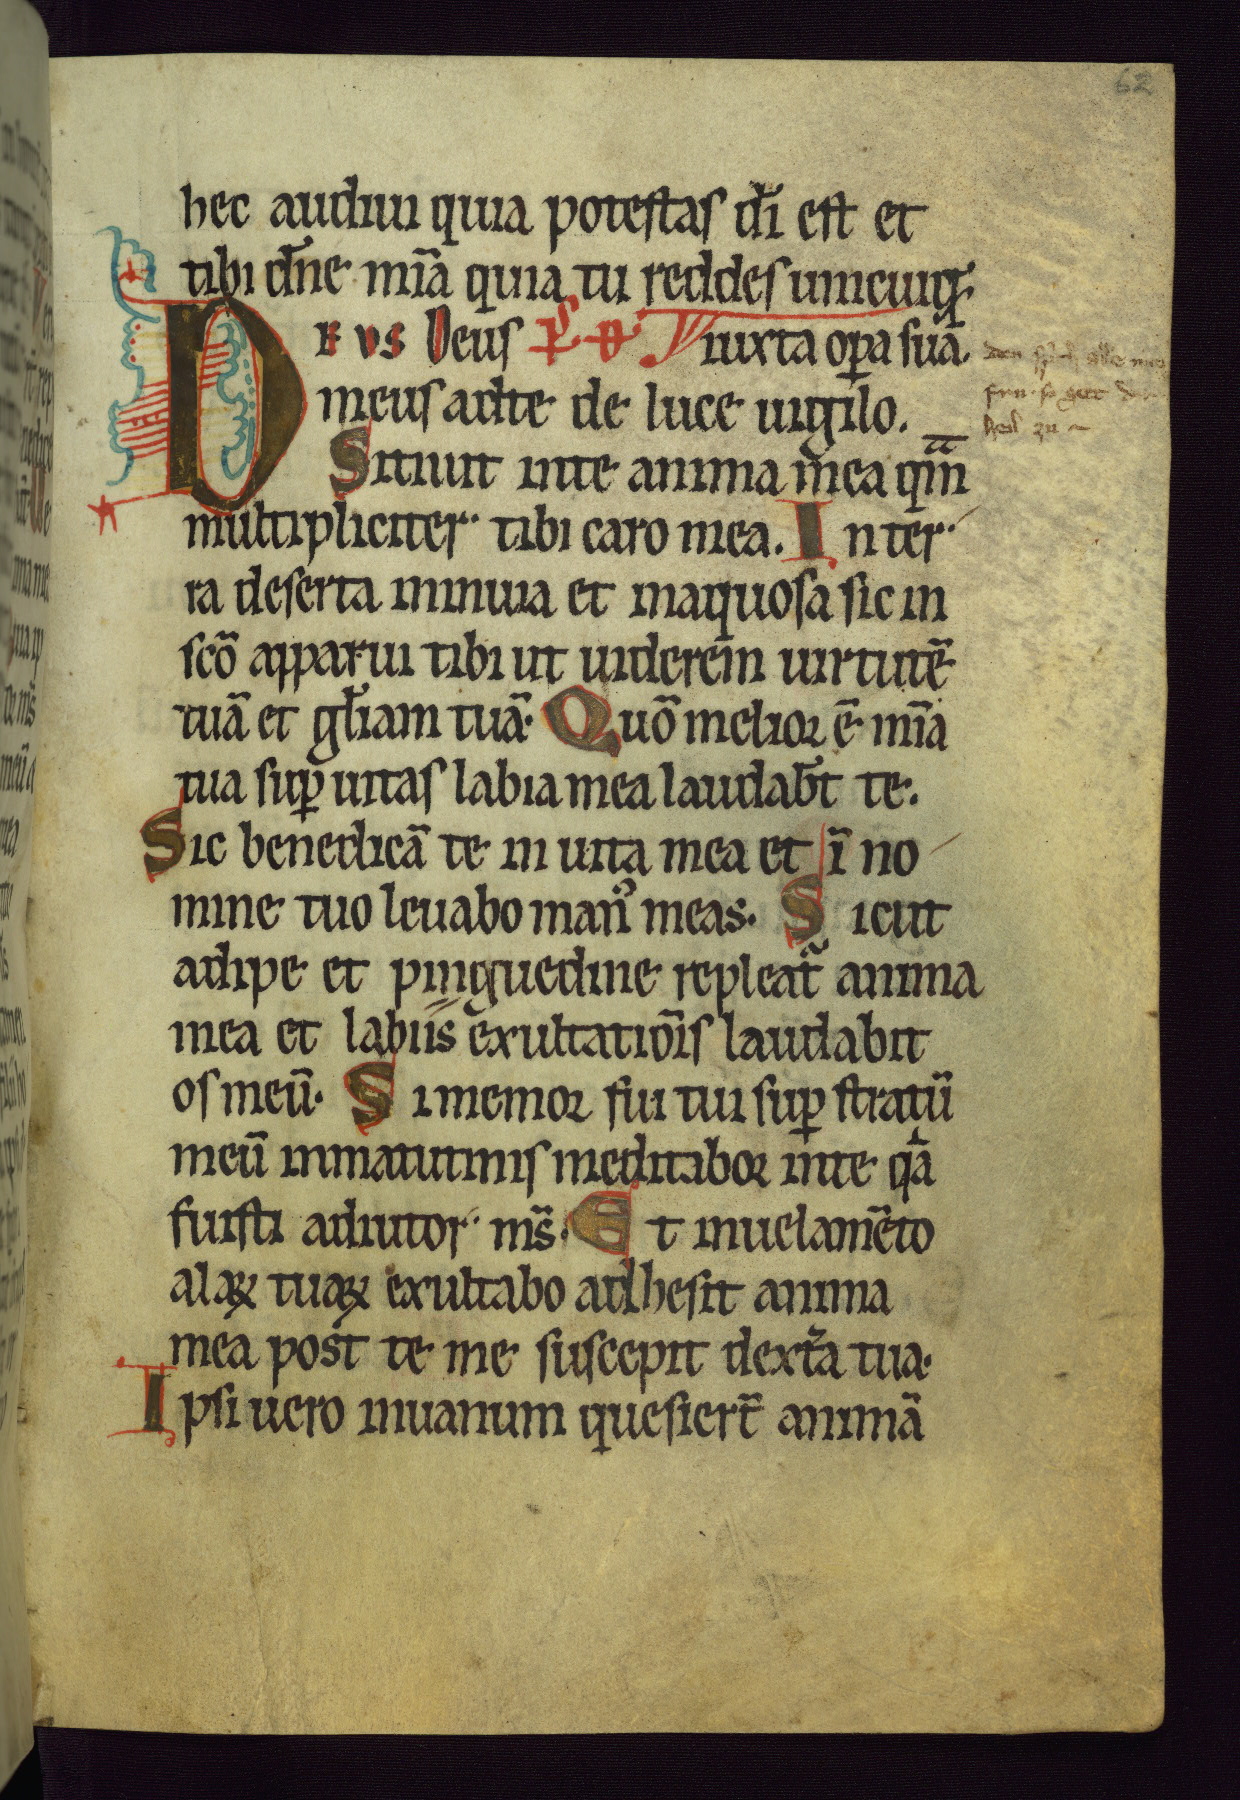 62
hec audiui quia potestas dī est et
tibi dñe mīa quia tu reddes unicuiq;
Eus Deus iuxta oꝑa sua.
meus ad te de luce uigilo.
Sitiuit in te anima mea qm̄
multipliciter tibi caro mea. In ter
ra deserta inuia et inaquosa sic in
scō apparui tibi ut uiderem uirtutē
tuā et gl̄iam tuā. Quō melior ē mīa
tua suꝑ uitas labia mea laudab̄t te.
Sic benedicā te in uita mea et ī no
mine tuo leuabo manꝰ meas. Sicut
adipe et pinguedine repleat᷑ anima
mea et labiis exultatiōis laudabit
os meū. Si memor fui tui suꝑ stratū
meū in matutinis meditabor in te qͣa
fuisti adiutor ms̄. Et in uelamēto
alaꝝ tuaꝝ exultabo adhesit anima
mea post te me suscepit dext̃a tua.
Ipsi uero in uanum quesiert̄ animā